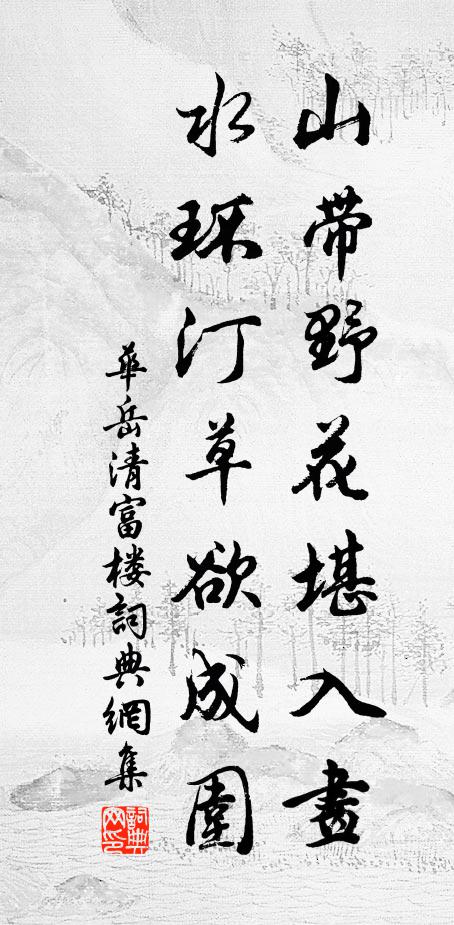 山帶野花堪入畫
水环汀草欲成圍
華岳清富楼詞典網集
詞典网印